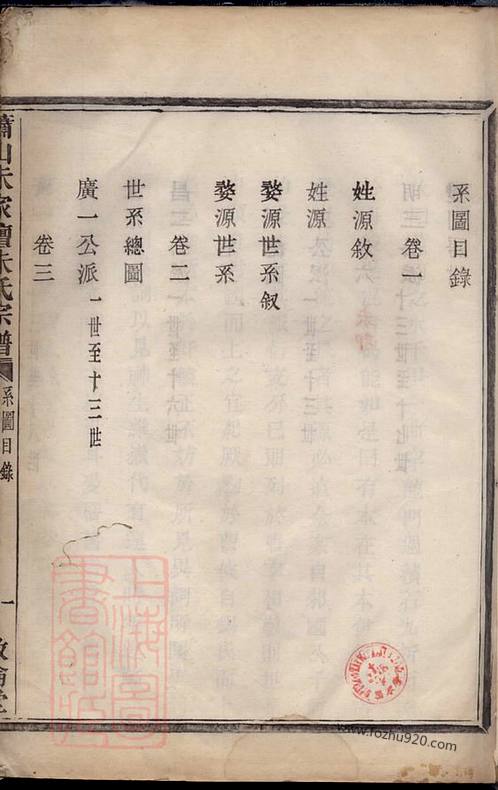 系圖目錄
卷一
姓源敘
姓源
婺源世系叙
婺源世系
卷二
世系總圖
廣一公派 一世至十三世
卷三
蕭山朱家壇朱氏宗譜
系圖目錄
一
敦倫堂
上海圖書館藏
www.fozhu920.com